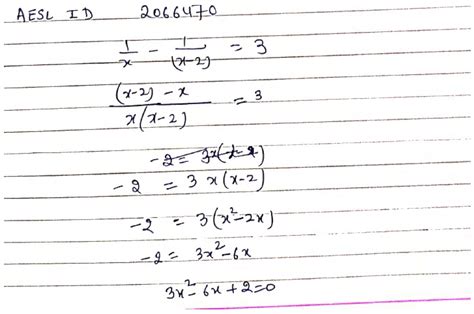 AESL ID 2066470
1/x - 1/(x-2) = 3
(x-2) - x / x(x-2) = 3
-2 = 3 x(x-2)
-2 = 3(x²-2x)
-2 = 3x²-6x
3x²-6x+2=0